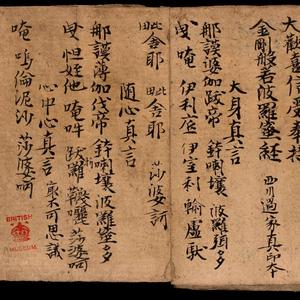 大歡喜信受奉持
金剛般若波羅蜜經 西川過家真印本
大身真言
那謨婆伽跋帝 鉢喇壤 波羅 多
曳唵 伊利底 伊室利 輸盧馱
毗舍耶 毗舍耶 莎婆訶
隨心真言
那謨薄伽伐帝 鉢喇壤 波羅蜜多
曳怛姪他 唵吽 莎婆訶
心中心真言 最不可思議
唵 嗚倫泥沙 莎婆訶
BRITISH
MUSEUM